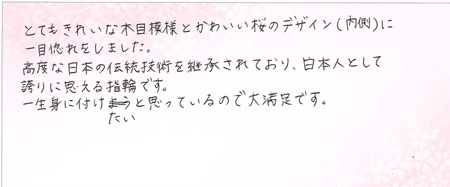 とてもきれいな木目模様とかわいい桜のデザイン(内側)に
一目惚れをしました。
高度な日本の伝統技術を継承されており、日本人として
誇りに思える指輪です。
一生身に付けようと思っているので大満足です。
たい